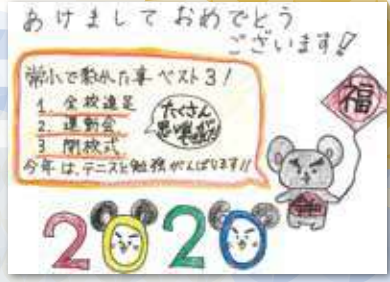 あけまして おめでとう
ございます!!
常小で楽しかった事 ベスト3!
1. 全校遠足
2. 運動会
3 閉校式
たくさん
思い出が
できました
今年は、テニスと勉強がんばります!!
福
2020